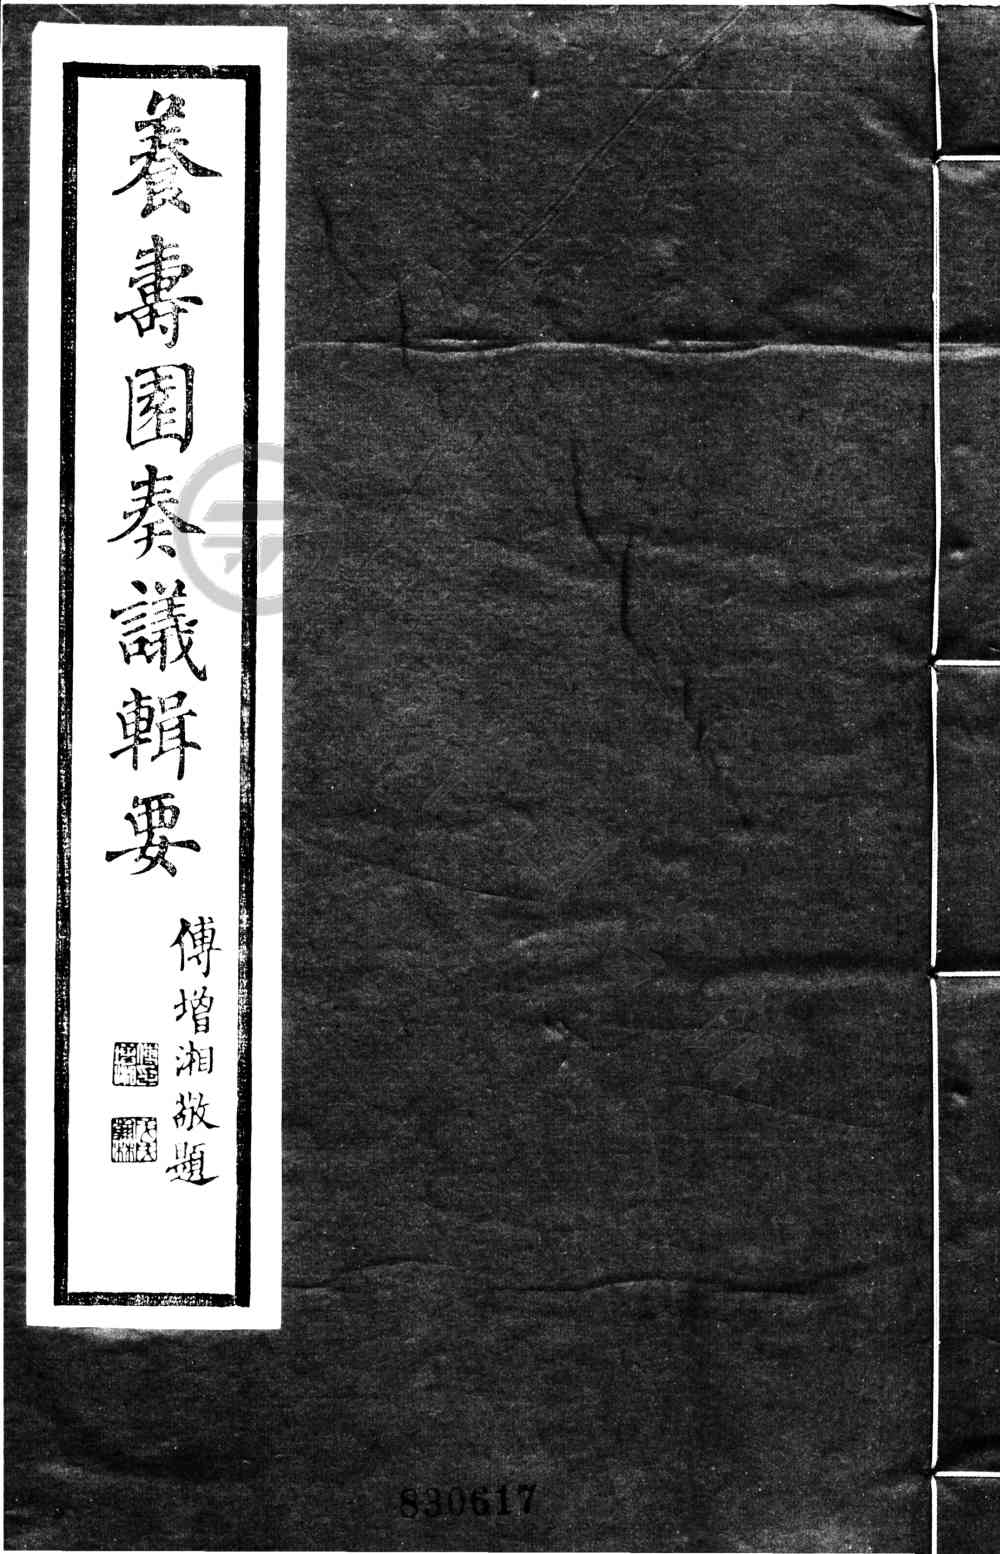 養壽園奏議輯要
傅增湘敬題
830617